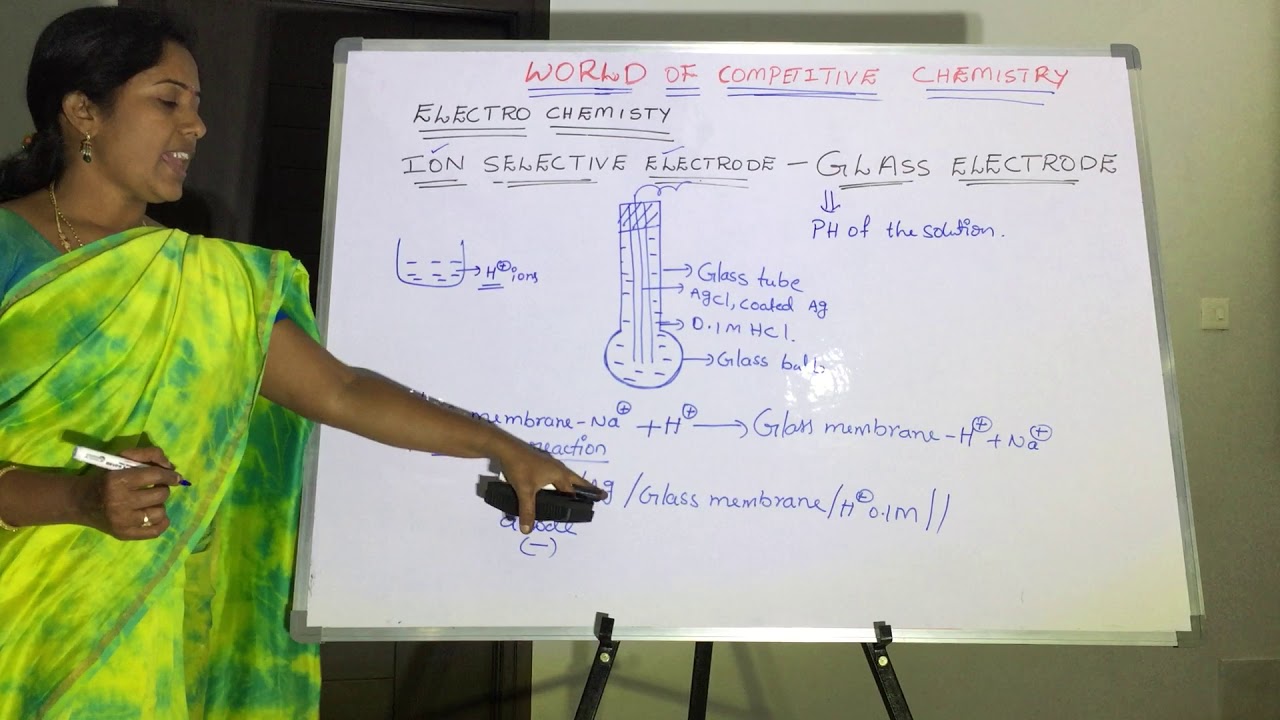 WORLD OF COMPETITIVE CHEMISTRY
ELECTRO CHEMISTY
ION SELECTIVE ELECTRODE – GLASS ELECTRODE
⇓
PH of the solution.
→ H⊕ ions
→ Glass tube
→ AgCl, coated Ag
→ 0.1M HCl.
→ Glass bulb
membrane - Na⊕ + H⊕ → Glass membrane - H⊕ + Na⊕
reaction
Ag / Glass membrane / H⊕ 0.1M //
(−)